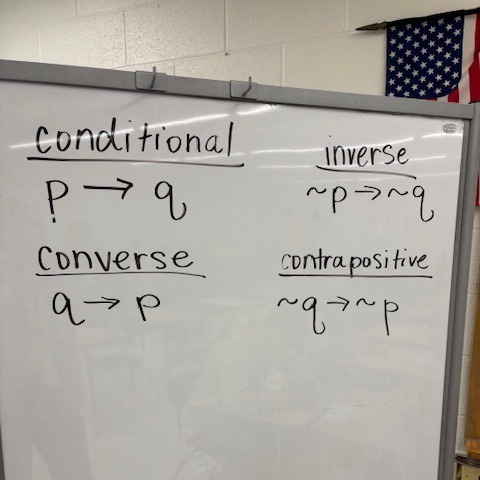 conditional
p → q
inverse
~p → ~q
converse
q → p
contrapositive
~q → ~p